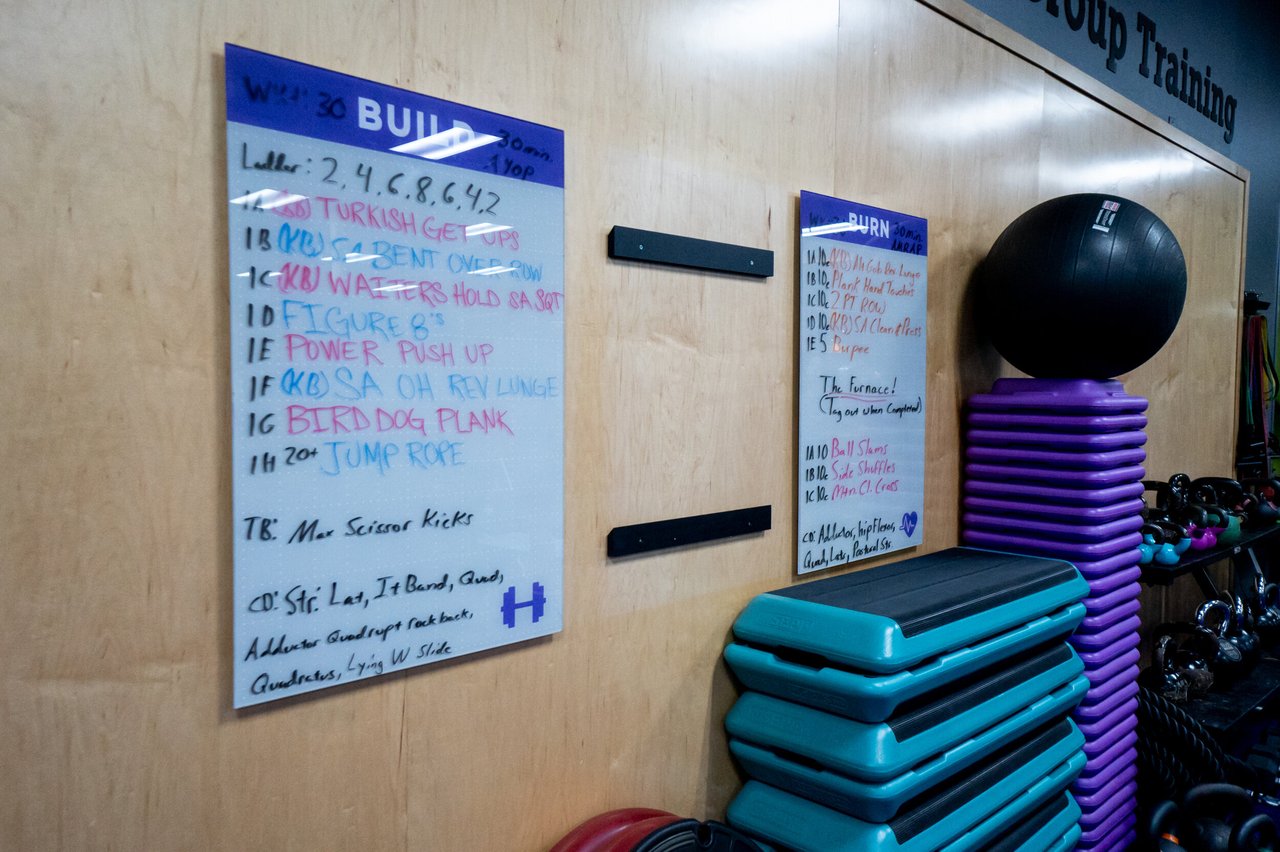 Group Training
BUILD
30 min.
Ladder: 2, 4, 6, 8, 6, 4, 2
1A (KB) TURKISH GET UPS
1B (KB) SA BENT OVER ROW
1C (KB) WAITERS HOLD SA SQT
1D FIGURE 8's
1E POWER PUSH UP
1F (KB) SA OH REV LUNGE
1G BIRD DOG PLANK
1H 20+ JUMP ROPE
TB: Max Scissor Kicks
CD: Str: Lat, It Band, Quad,
Adductor Quadrupt rock back,
Quadratus, Lying W Slide
BURN
30 min.
AMRAP
1A 10e (KB) Alt Gob Rev Lunge
1B 10e Plank Hand Touches
1C 10e 2 PT ROW
1D 10e (KB) SA Clean & Press
1E 5 Burpee
The Furnace!
(Tag out when Completed)
1A 10 Ball Slams
1B 10e Side Shuffles
1C 10e Mtn. Cl. Cross
CD: Adductor, hip flexor,
Quad, Lats, Pectoral Str